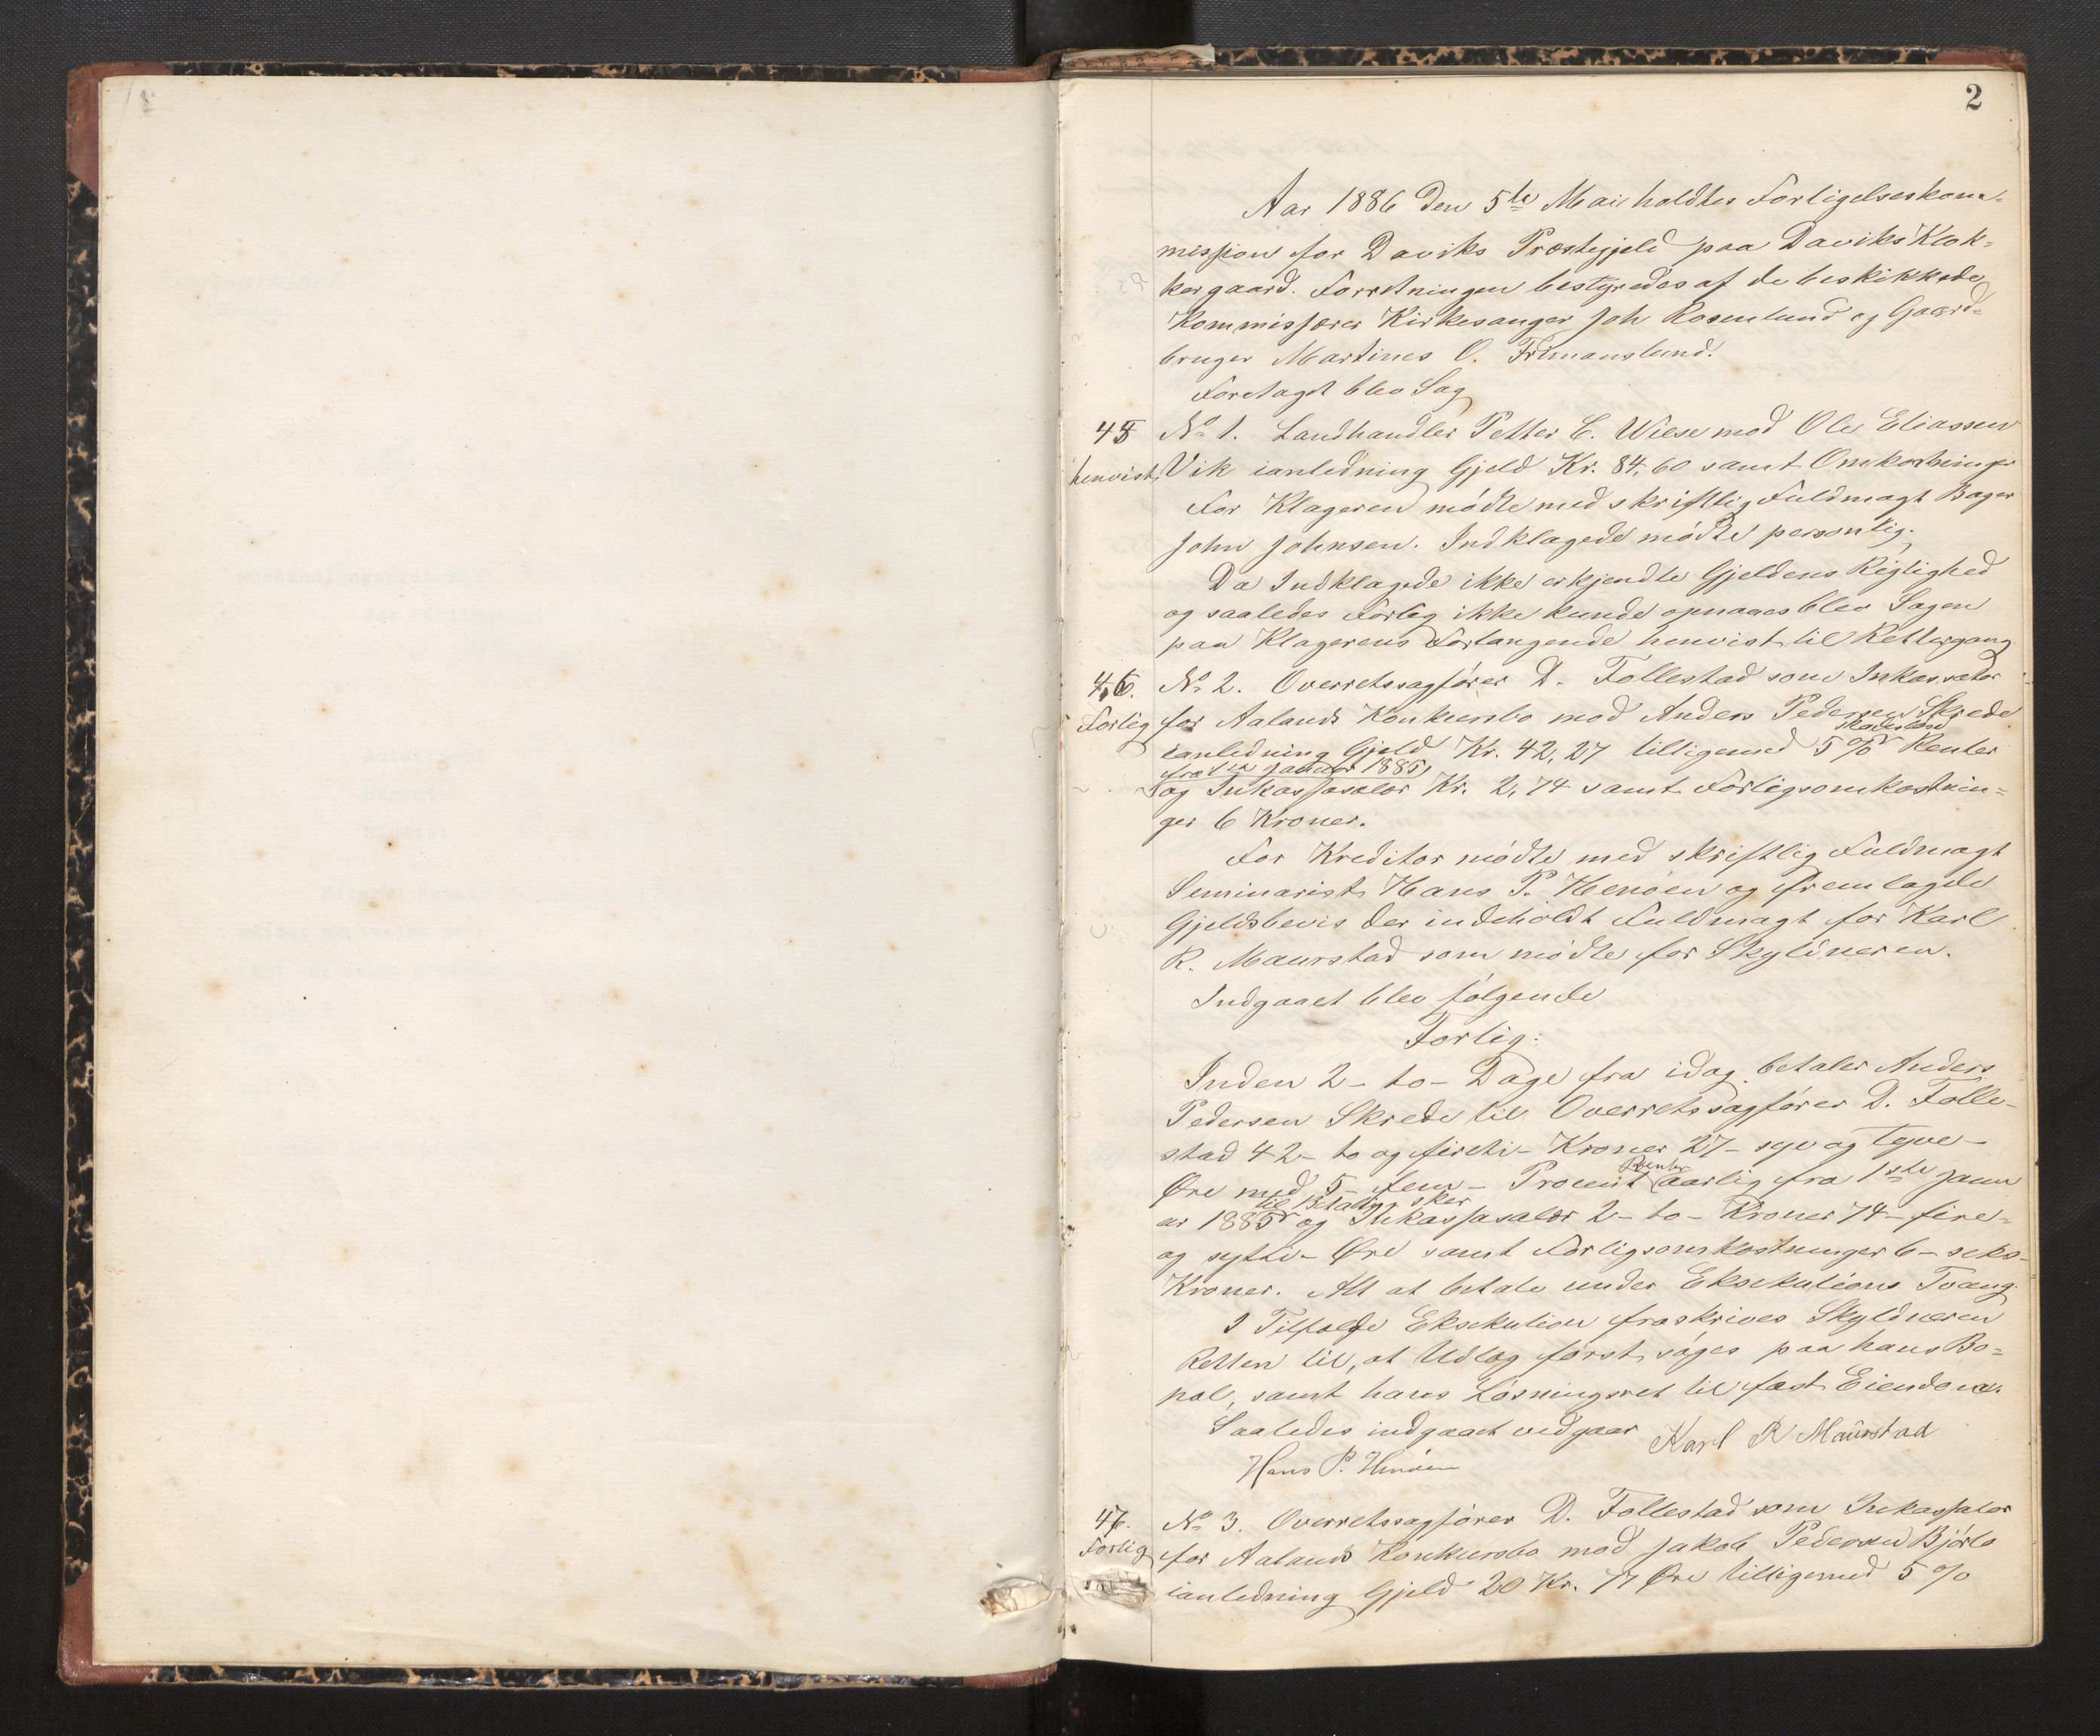 2
Aar 1886 den 5te Mai holdtes Forligelseskom-
mission for Daviks Præstegjeld paa Daviks Klok-
kergaard. Forretningen bestyredes af de beskikkede
Kommissærer Kirkesanger Joh Rosenlund og Gaard-
bruger Martines O.
Foretaget blev Sag
45 No 1. Landhandler Petter C. Wiese mod Ole Eliassen
henvist. Vik ianledning Gjeld Kr. 84,60 samt Omkostninger
For Klageren mødte med skriftlig Fuldmagt Bager
John Johnsen. Indklagede mødte personlig.
Da Indklagede ikke erkjendte Gjeldens Rigtighed
og saaledes Forlig ikke kunde opnaaes blev Sagen
paa Klagerens Forlangende henvist til Rettergang
46. No 2. Overretssagfører D. Follestad som Inkassator
Forlig for Aalands Konkursbo mod Anders Pedersen Skrede
ianledning Gjeld Kr. 42,27 tilligemed 5 % Renter
fra 1ste Januar 1885
og Inkassosalær Kr. 2,74 samt Forligsomkostnin-
ger 6 Kroner.
For Kreditor mødte med skriftlig Fuldmagt
Seminarist Hans P. Henøen og fremlagde
Gjeldsbevis der indeholdt Fuldmagt for Karl
R. Maurstad som mødte for Skyldneren.
Indgaaet blev følgende
Forlig:
Inden 2 - to - Dage fra idag betaler Anders
Pedersen Skrede til Overretssagfører D. Folle-
stad 42 - to og fireti - Kroner 27 - syv og tyve -
Øre med 5 - fem - Procent Renter aarlig fra 1ste Janu
ar 1885 til Betaling sker og Inkassosalær 2 - to - Kroner 74 - fire-
og sytti - Øre samt Forligsomkostninger 6 - seks -
Kroner. Alt at betale under Eksekutions Tvang
I Tilfælde Eksekution fraskrives Skyldneren
Retten til, at Udlæg først søges paa hans Bo-
pæl, samt hans Løsningsret til fast Eiendom.
Saaledes indgaaet vedgaar Karl R Maurstad
Hans P. Henøen
47. No 3. Overretssagfører D. Follestad som Inkassator
Forlig for Aalands Konkursbo mod Jakob Pedersen Bjørlo
ianledning Gjeld 20 Kr. 77 Øre tilligemed 5 %